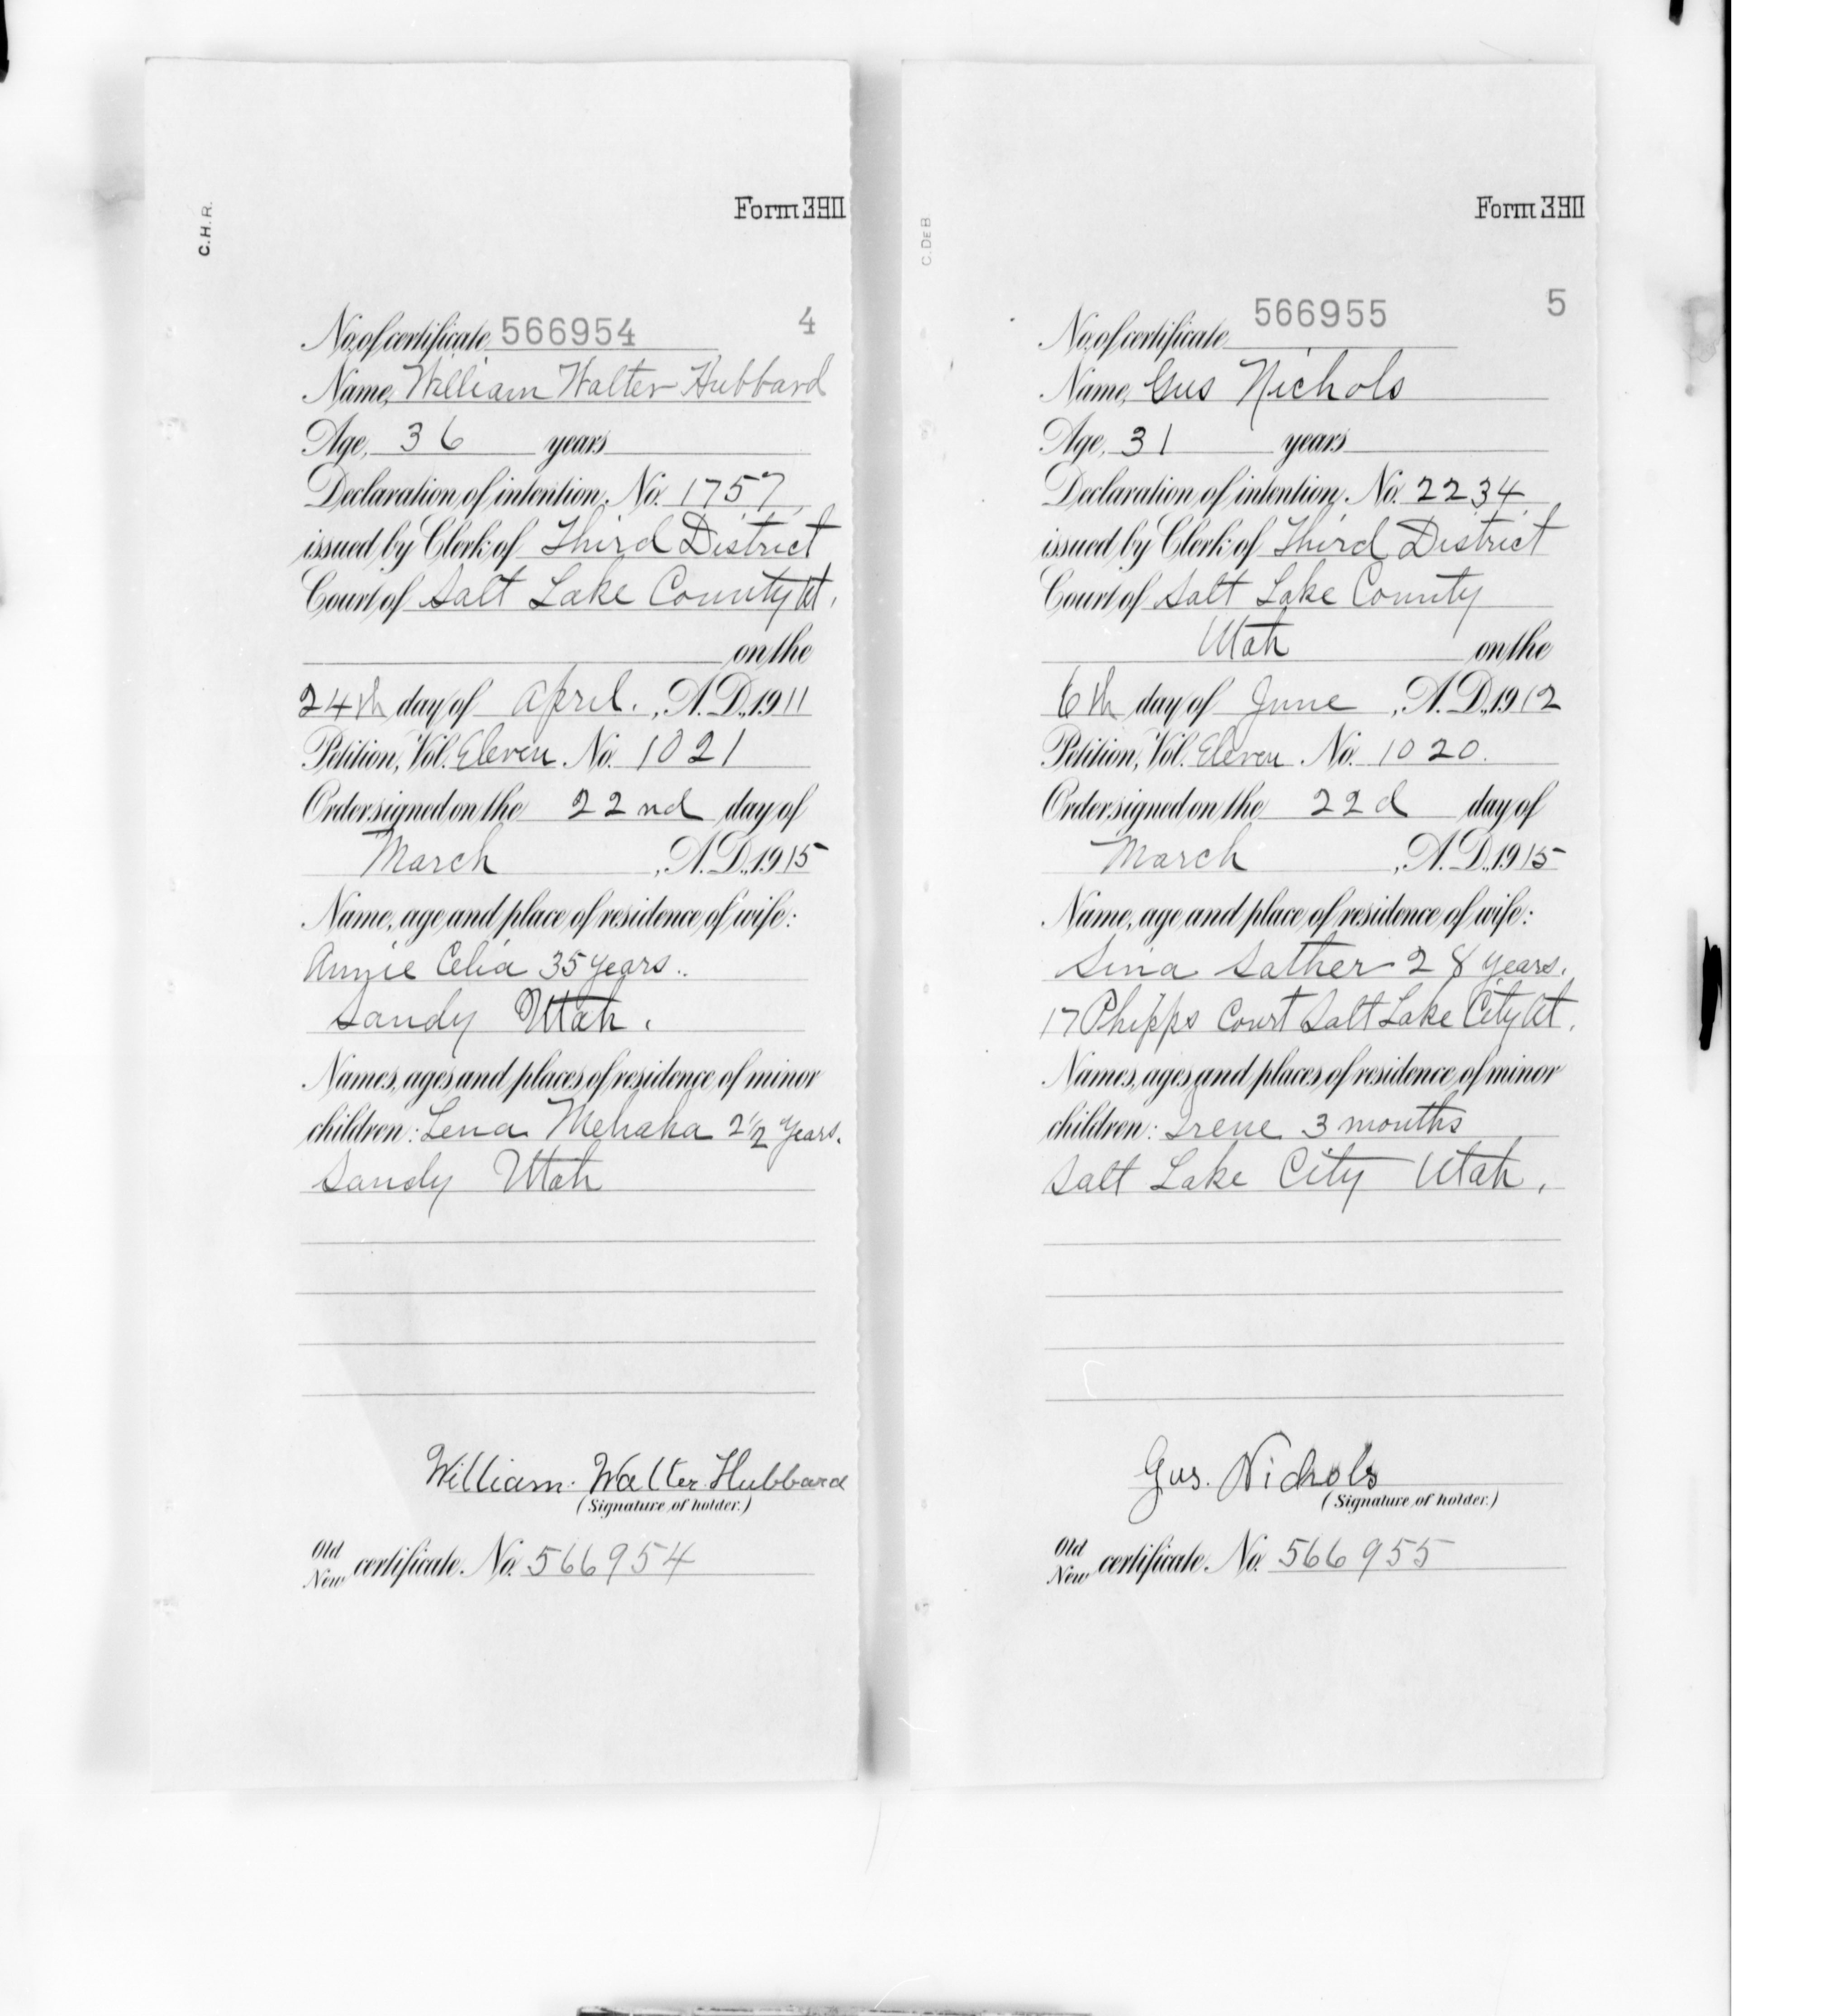 C.H.R.
Form 390
No. of certificate, 566954 4
Name, William Walter Hubbard
Age, 36 years
Declaration of intention, No. 1757,
issued by Clerk of Third District
Court of Salt Lake County Ut.
on the
24th day of April., A.D., 1911
Petition, Vol. Eleven. No. 1021
Order signed on the 22nd day of
March, A.D., 1915
Name, age and place of residence of wife:
Annie Celia 35 years..
Sandy Utah.
Names, ages and places of residence of minor
children: Lena Mehaka 2½ Years.
Sandy Utah
William. Walter. Hubbard
(Signature of holder.)
Old
New certificate. No. 566954
C.DEB.
Form 390
566955 5
No. of certificate
Name, Gus Nichols
Age, 31 years
Declaration of intention, No. 2234,
issued by Clerk of Third District
Court of Salt Lake County
Utah on the
6th day of June, A.D., 1912
Petition, Vol. Eleven. No. 1020.
Order signed on the 22d day of
March, A.D., 1915
Name, age and place of residence of wife:
Sina Sather 28 years.
17 Phipps Court Salt Lake City Ut.
Names, ages and places of residence of minor
children: Irene 3 months
Salt Lake City Utah.
Gus. Nichols
(Signature of holder.)
Old
New certificate. No. 566955